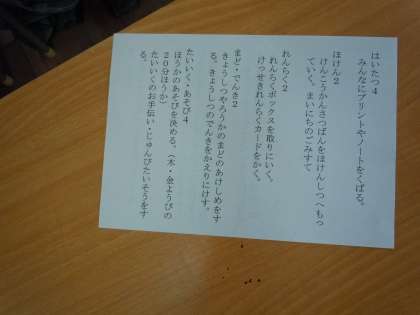 はいたつ4
みんなにプリントやノートをくばる。
ほけん2
けんこうかんさつばんをほけんしつへもっ
ていく。まいにちのごみすて
れんらく2
れんらくボックスを取りにいく。
けっせきれんらくカードをかく。
まど・でんき2
きょうしつやろうかのまどのあけしめをす
る。きょうしつのでんきをかえりにけす。
たいいく・あそび4
ほうかのあそびを決める。(木・金ようびの
20分ほうか)
たいいくのお手伝い・じゅんびたいそうをす